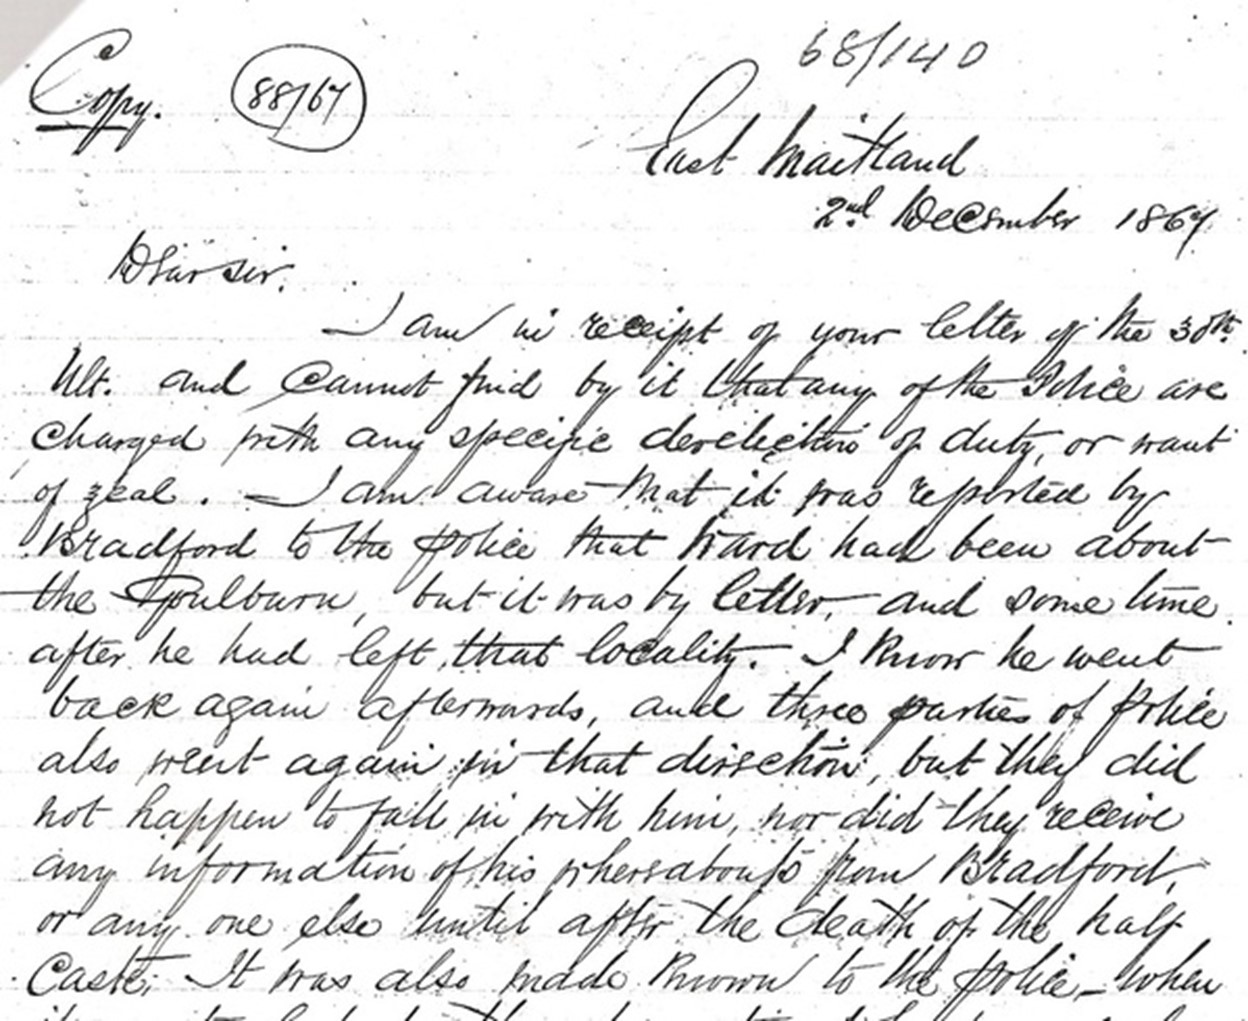 68/140
Copy. 88/67
East Maitland
2nd December 1867
Dear Sir.
I am in receipt of your letter of the 30th
Ult. and Cannot find by it that any of the Police are
Charged with any specific dereliction of duty, or want
of zeal. — I am aware that it was reported by
Bradford to the police that Ward had been about
the Goulburn, but it was by letter, and some time
after he had left that locality. I know he went
back again afterwards, and three parties of Police
also went again in that direction, but they did
not happen to fall in with him, nor did they receive
any information of his whereabouts from Bradford,
or any one else until after the death of the half
Caste. It was also made known to the police — when